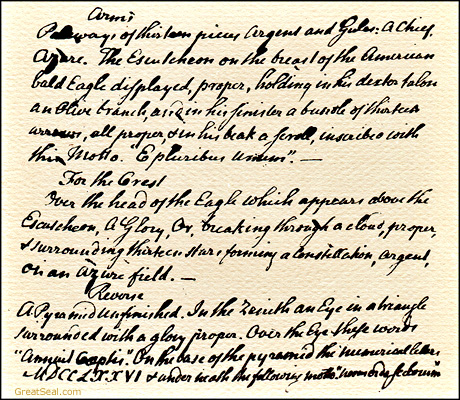 Arms
Paleways of thirteen pieces Argent and Gules: A Chief,
Azure. The Escutcheon on the breast of the American
bald Eagle displayed, proper, holding in his dexter talon
an Olive branch, and in his sinister a bundle of thirteen
arrows, all proper, & in his beak a scroll, inscribed with
this Motto. "E pluribus unum". —
For the Crest
Over the head of the Eagle which appears above the
Escutcheon, A Glory, Or, breaking through a cloud, proper,
& surrounding thirteen stars forming a Constellation, Argent,
on an Azure field. —
Reverse
A Pyramid Unfinished. In the Zenith an Eye in a triangle
surrounded with a glory proper. Over the Eye these words
"Annuit Coeptis." On the base of the pyramid the numerical letters
MDCCLXXVI & underneath the following motto. "novus ordo seclorum"
GreatSeal.com